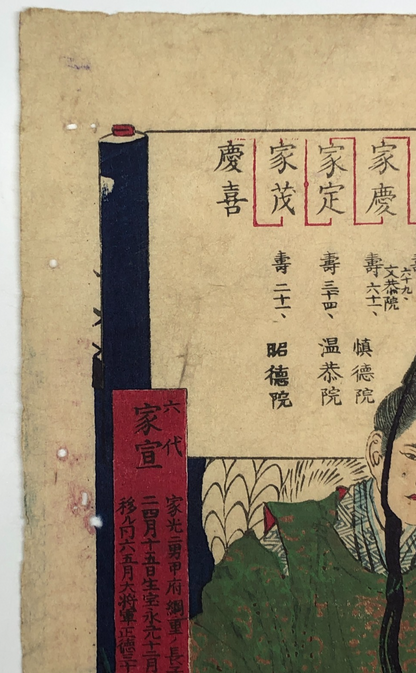 家慶
壽 六十一、
慎徳院
文恭院
六十九、
家定
壽 三十四、
温恭院
家茂
壽 二十一、
昭德院
慶喜
六代
家宣
家光二男甲府綱重ノ長子
二四月十五日生宝永元十二月
移ル同六五月大将軍正徳三十